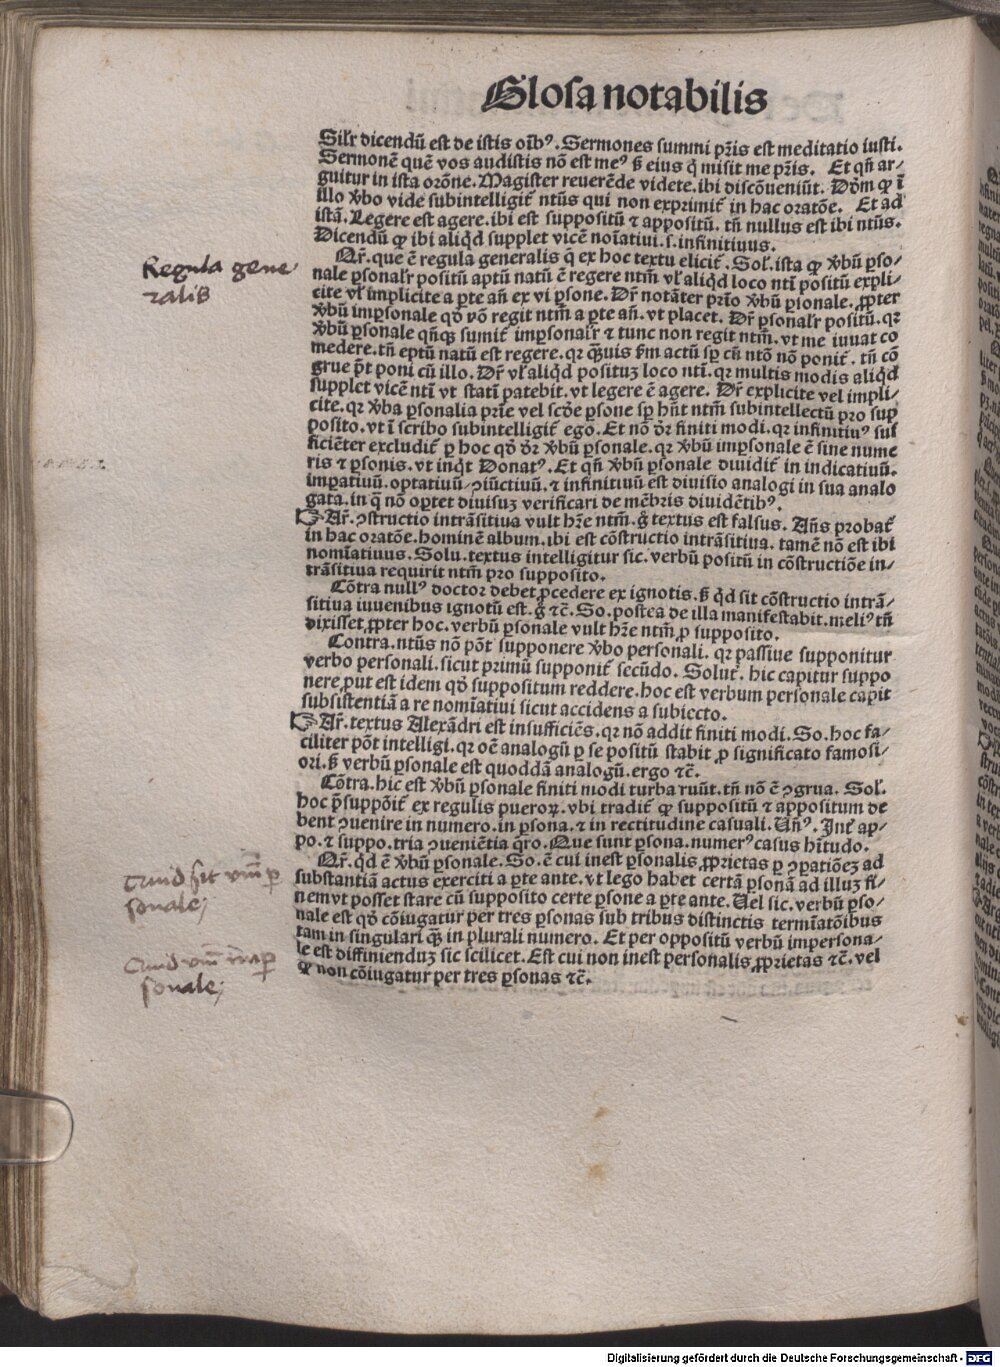 Glosa notabilis
Silr dicendū est de istis oīb⁹. Sermones summi pr̄is est meditatio iusti.
Sermonē quē vos audistis nō est me⁹ ß eius q̇ misit me pr̄is. Et qn̄ ar-
guitur in ista orōne. Magister reuerēde videte. ibi discōueniūt. Dōm ꝙ ī
illo v̄bo vide subintelligit̄ ntūs qui non exprimit̄ in hac oratōe. Et ad
istā. Legere est agere. ibi est suppositū ⁊ appositū. tn̄ nullus est ibi ntūs.
Dicendū ꝙ ibi aliqd̄ supplet vicē noīatiui. s. infinitiuus.
Regula gene
ralis
Qr̄. que ē regula generalis q̄ ex hoc textu elicit̄. Sol̄. ista ꝙ v̄bū ꝑso-
nale ꝑsonalr̄ positū aptū natū ē regere ntm̄ vl̄ aliqd̄ loco ntī positū expli-
cite vl̄ implicite a ꝑte an̄ ex vi ꝑsone. Dr̄ notāter prīo v̄bū ꝑsonale. ꝓpter
v̄bū imꝑsonale qd̄ nō regit ntm̄ a ꝑte an̄. vt placet. Dr̄ ꝑsonalr̄ positū. qr
v̄bū ꝑsonale qn̄qꝫ sumit̄ imꝑsonalr̄ ⁊ tunc non regit ntm̄. vt me iuuat co
medere. tn̄ eptū natū est regere. qr q̄ꝫuis ẜm actū sꝑ cū ntō nō ponit̄. tn̄ cō
grue pt̄ poni cū illo. Dr̄ vl̄ aliqd̄ posituꝫ loco ntī. qr multis modis aliqd̄
supplet vicē ntī vt statī patebit. vt legere ē agere. Dr̄ explicite vel impli-
cite. qr v̄ba ꝑsonalia prīe vel scd̄e ꝑsone sꝑ hn̄t ntm̄ subintellectū pro sup
posito. vt ī scribo subintelligit̄ egō. Et nō dr̄ finiti modi. qr infinitiu⁹ suf
ficiēter excludit̄ ꝑ hoc qd̄ dr̄ v̄bū ꝑsonale. qr v̄bū imꝑsonale ē sine nume
ris ⁊ ꝑsonis. vt inqt̄ Donat⁹. Et qn̄ v̄bū ꝑsonale diuidit̄ in indicatiuū.
imꝑatiuū. optatiuū. ꝯiūctiuū. ⁊ infinitiuū est diuisio analogi in sua analo
gata. in q̄ nō oꝑtet diuisuꝫ verificari de mēbris diuidētib⁹.
☞ Ar̄. ꝯstructio intrāsitiua vult hr̄e ntm̄. g̊ textus est falsus. An̄s probat̄
in hac oratōe. hominē album. ibi est cōstructio intrāsitiua. tamē nō est ibi
nomīatiuus. Solu. textus intelligitur sic. verbū positū in cōstructiōe in-
trāsitiua requirit ntm̄ pro supposito.
Cōtra null⁹ doctor debet ꝓcedere ex ignotis. ß qd̄ sit cōstructio intrā-
sitiua iuuenibus ignotū est. g̊ ⁊c̄. So. postea de illa manifestabit. meli⁹ tn̄
dixisset ꝓpter hoc. verbū ꝑsonale vult hr̄e ntm̄ ꝓ supposito.
Contra. ntūs nō pōt supponere v̄bo personali. qr passiue supponitur
verbo personali. sicut primū supponit̄ secūdo. Solut̄. hic capitur suppo
nere ꝓut est idem qd̄ suppositum reddere. hoc est verbum personale capit
subsistentiā a re nomīatiui sicut accidens a subiecto.
☞ Ar̄. textus Alexādri est insufficiēs. qr nō addit finiti modi. So. hoc fa-
ciliter pōt intelligi. qr oē analogū ꝑ se positū stabit ꝓ significato famosi-
ori. ß verbū ꝑsonale est quoddā analogū. ergo ⁊c̄.
Cōtra. hic est v̄bū ꝑsonale finiti modi turba ruūt. tn̄ nō ē ꝯgrua. Sol̄.
hoc p̄suppōit̄ ex regulis pueroꝝ. vbi tradit̄ ꝙ suppositū ⁊ appositum de
bent ꝯuenire in numero. in ꝑsona. ⁊ in rectitudine casuali. Un̄⁹. Int̄ ap-
po. ⁊ suppo. tria ꝯueniētia q̄ro. Que sunt ꝑsona. numer⁹ casus hītudo.
Quid sit v̄bū ꝑ
sonale;
Qr̄. qd̄ ē v̄bū ꝑsonale. So. ē cui inest ꝑsonalis ꝓprietas ꝑ ꝯꝑatiōeꝫ ad
substantiā actus exerciti a ꝑte ante. vt lego habet certā ꝑsonā ad illuꝫ fi-
nem vt posset stare cū supposito certe ꝑsone a ꝑte ante. Uel sic. verbū ꝑso-
nale est qd̄ cōiugatur per tres ꝑsonas sub tribus distinctis termīatōibus
tam in singulari q̄ꝫ in plurali numero. Et per oppositū verbū impersona-
Quid v̄bū imꝑ
sonale;
le est diffiniendꝫ sic scilicet. Est cui non inest personalis ꝓprietas ⁊c̄. vel
ꝙ non cōiugatur per tres ꝑsonas ⁊c̄.
Digitalisierung gefördert durch die Deutsche Forschungsgemeinschaft - DFG